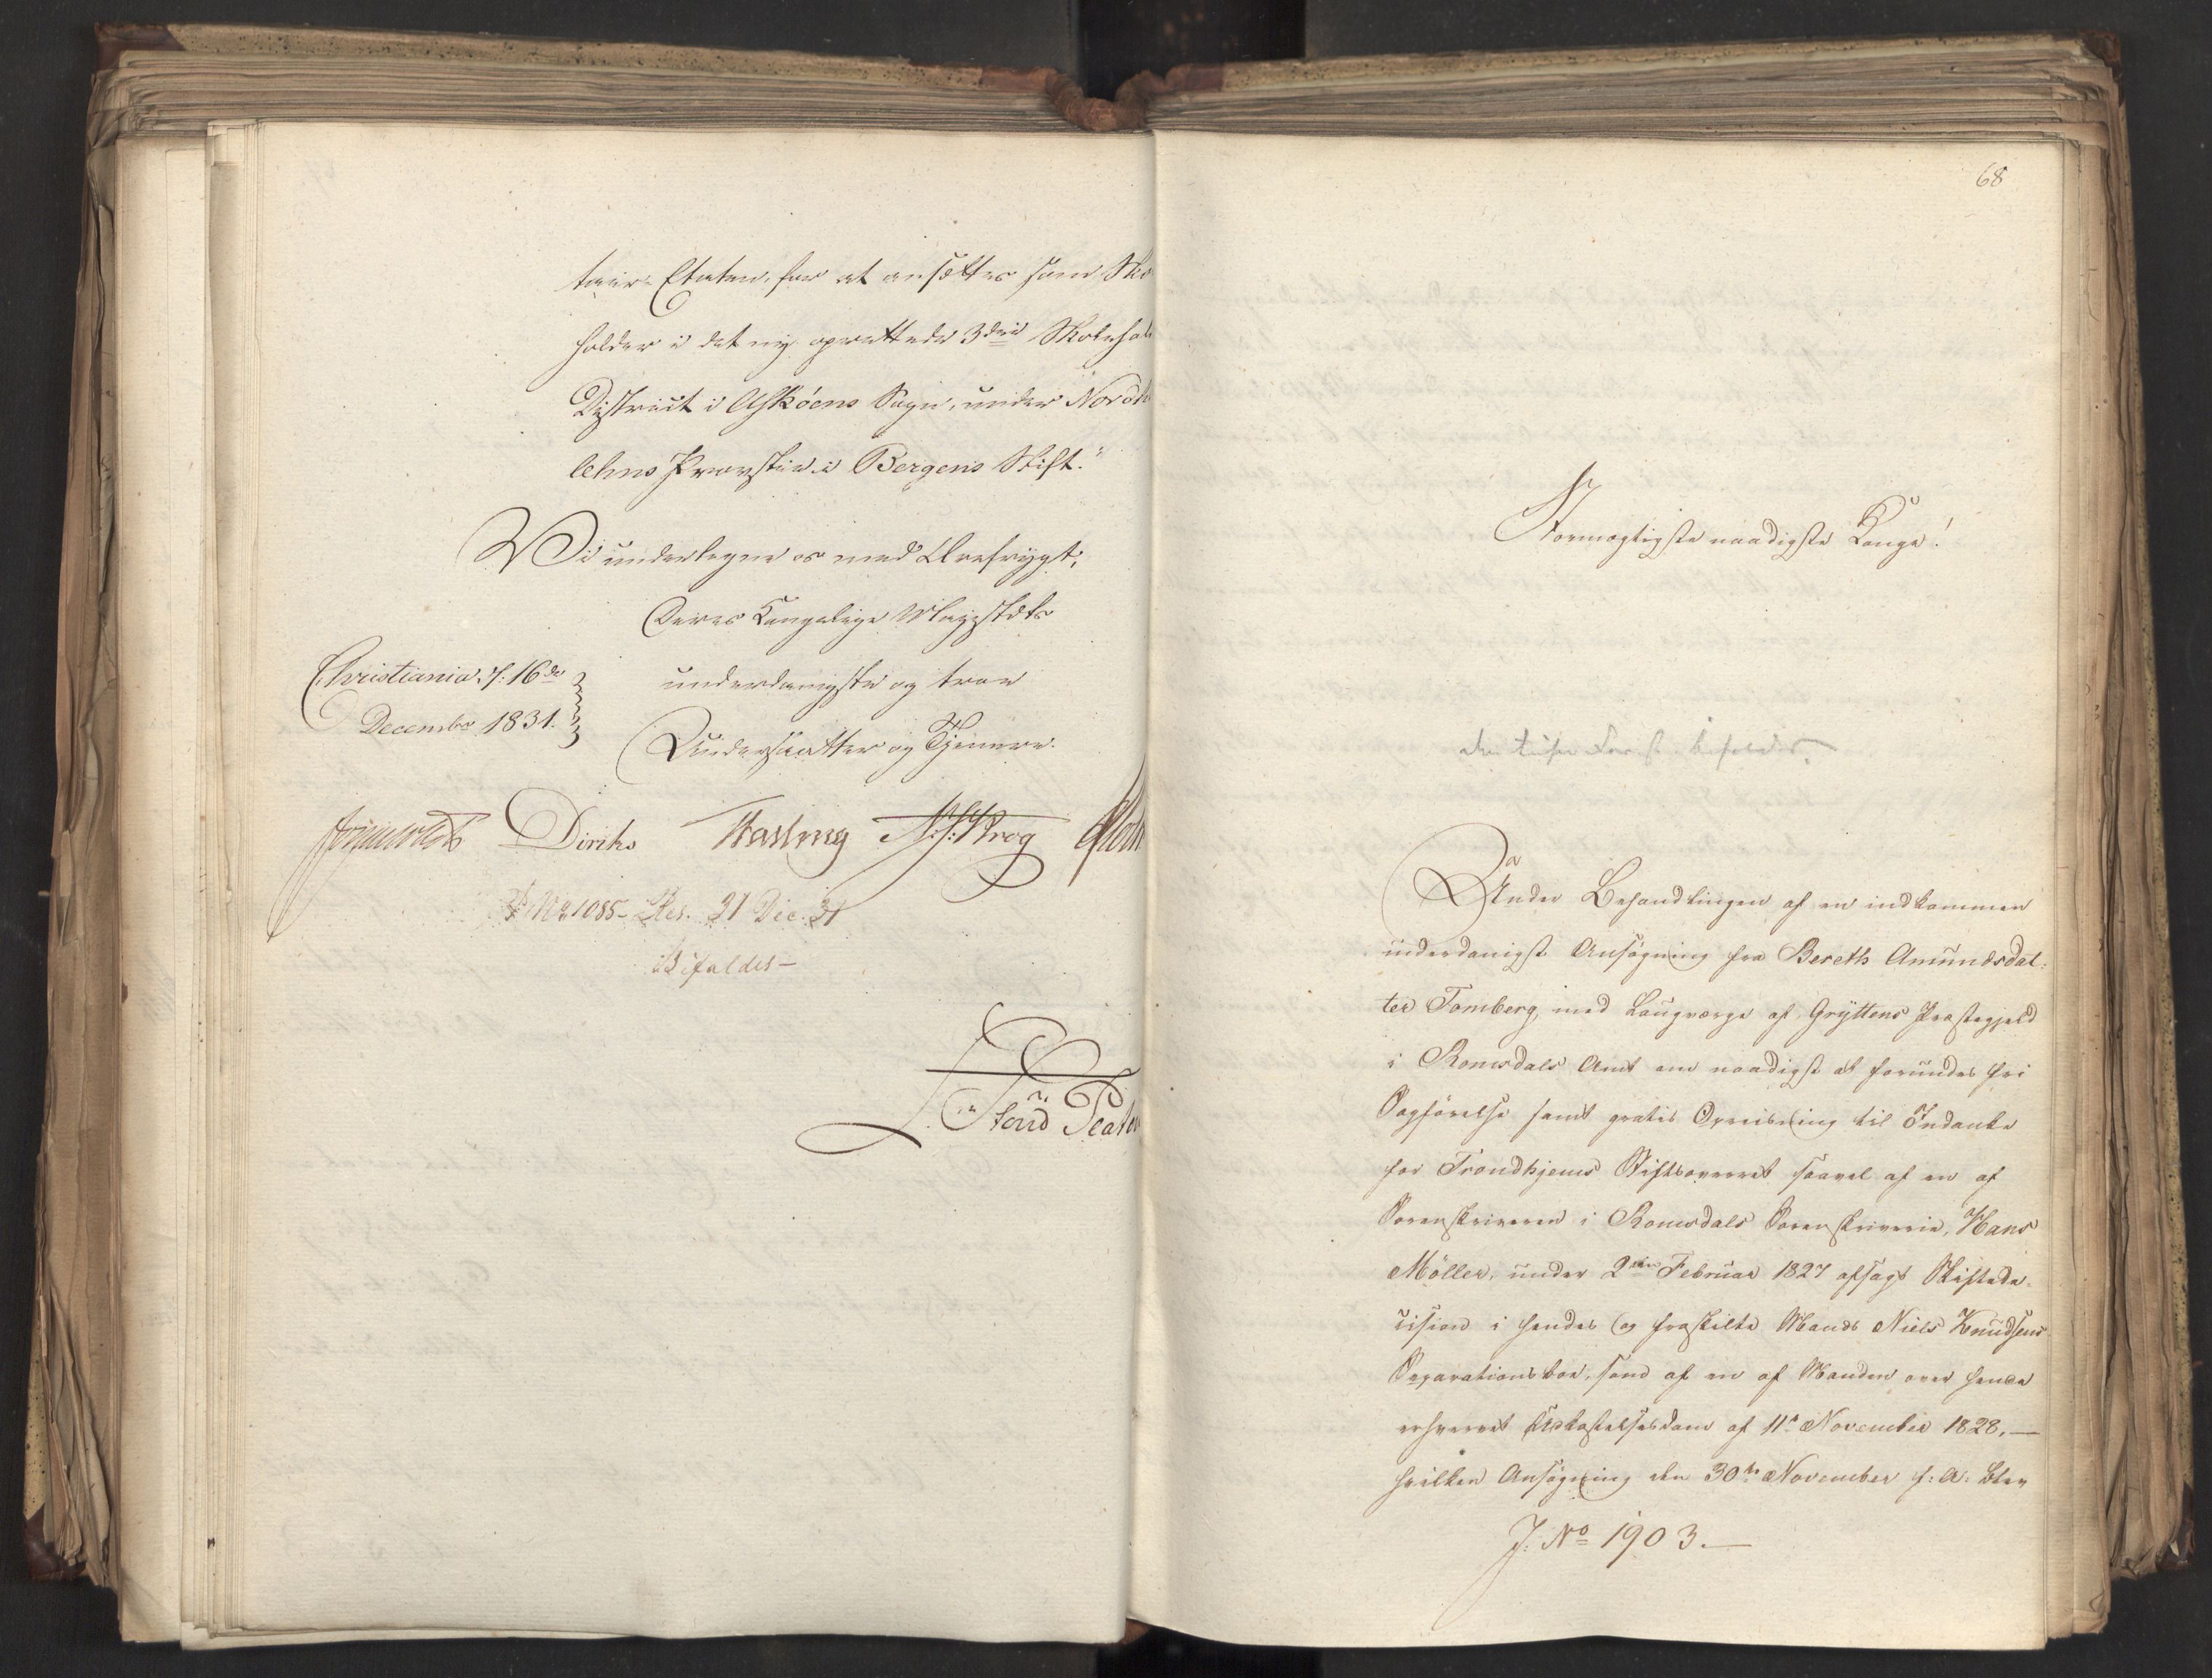 tair-Etaten, for at ansættes som Sko
holder i det ny oprettede 3die Skolehol
District i Askøens Sogn, under Nordh
lehns Provstie i Bergens Stift."
Vi undertegne os med Ærefrygt,
Deres Kongelige Majestæts
Christiania d: 16de
underdanigste og troe
December 1831.
Undersaatter og Tjenere.
Diriks Fasting Krog
No 1085 - Res. 21 Dec. 31
Bifaldes -
68
Stormægtigste naadigste Konge!
bifaldes
Under Behandlingen af en indkommen
underdanigst Ansøgning fra Bereth Amundsdat-
ter Tomberg, med Laugværge af Gryttens Præstegjeld
i Romsdals Amt om naadigst at forundes fri
Sagførelse samt gratis Opreisning til Indanke
for Trondhjems Stiftsoverret saavel af en af
Sorenskriveren i Romsdals Sorenskriverie, Hans
Möller, under 2den Februar 1827 afsagt Skiftede-
cision i hendes og fraskilte Mands Niels Knudsens
Separationsboe, som af en af Manden over hende
erhvervet Udkastelsesdom af 11te November 1828, —
hvilken Ansøgning den 30te November f: A: blev
J: No 1903. —